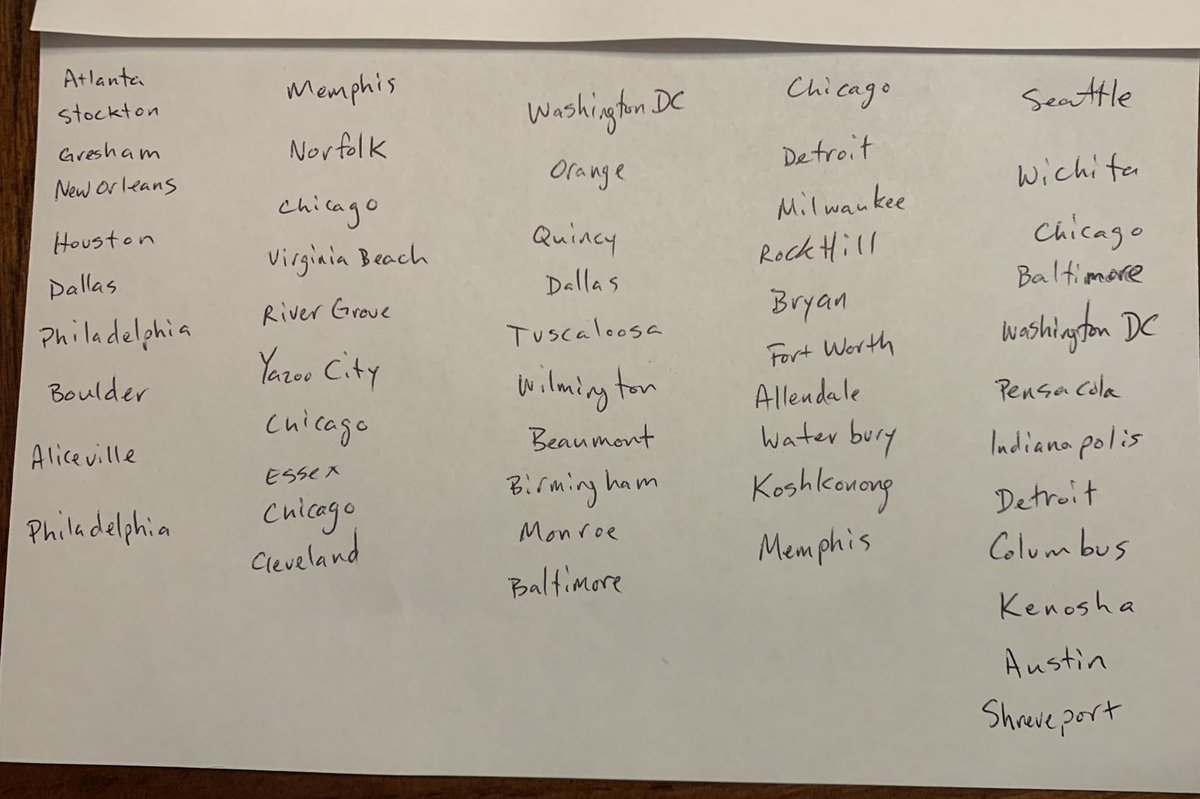 Atlanta
Stockton
Gresham
New Orleans
Houston
Dallas
Philadelphia
Boulder
Aliceville
Philadelphia
Memphis
Norfolk
Chicago
Virginia Beach
River Grove
Yazoo City
Chicago
Essex
Chicago
Cleveland
Washington DC
Orange
Quincy
Dallas
Tuscaloosa
Wilmington
Beaumont
Birmingham
Monroe
Baltimore
Chicago
Detroit
Milwaukee
Rock Hill
Bryan
Fort Worth
Allendale
Waterbury
Koshkonong
Memphis
Seattle
Wichita
Chicago
Baltimore
Washington DC
Pensacola
Indianapolis
Detroit
Columbus
Kenosha
Austin
Shreveport